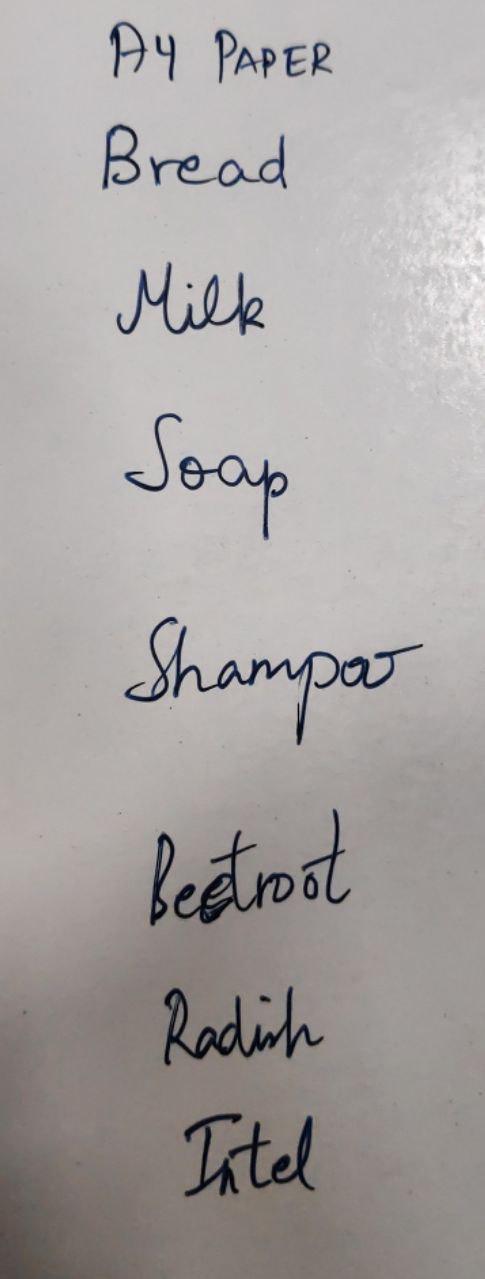 A4 PAPER
Bread
Milk
Soap
Shampoo
Beetroot
Radish
Intel